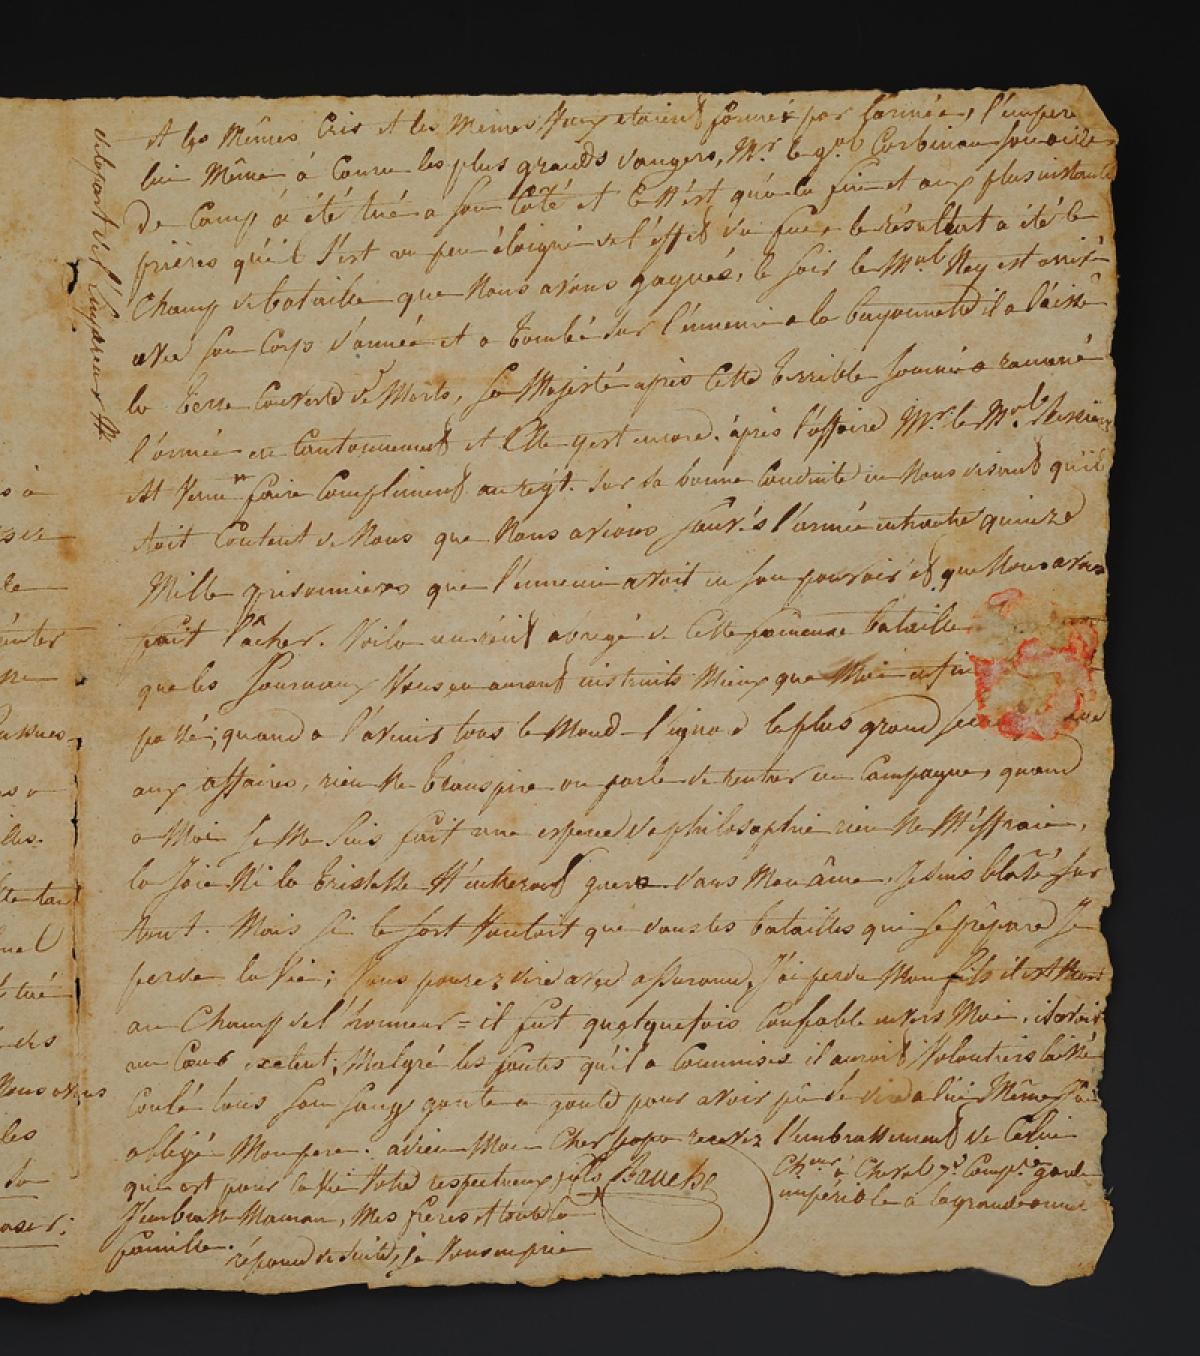 et les mêmes cris et les mêmes vœux etoient formés par l'armée, l'empere
lui même à couru les plus grands dangers, Mr. le gal Corbineau son aide
de camp à été tué a son côté et ce n'est qu'a la fin et aux plus instante
prières qu'il s'est un peu éloigné de l'effet du feu le résultat a été le
champ de bataille que nous avons gagnés, le soir le Mal Ney est arrivé
avec son corps d'armée et a tombé sur l'ennemi a la bayonnette il a laissé
la terre couverte de morts, sa Majesté après cette terrible journée a ramené
l'armée en cantonnement et elle y est encore. après l'affaire Mr. le Mal Bessieres
est venu faire compliment au regt. sur sa bonne conduite en nous disant qu'il
etoit content de nous que nous avions sauvés l'armée et quinze
mille prisonniers que l'ennemi avoit en son pouvoir et que nous avons
fait lâcher. voila un récit abrégé de cette fameuse bataille
que les journaux vous en auront instruits mieux que moi enfin
passé; quand a l'avenir tous le monde l'ignore le plus grand
aux affaires, rien ne transpire on parle de rentrer en campagne, quand
a moi je me suis fait une espece de philosophie rien ne m'éffraie,
la joie ni la tristesse n'entrent guere dans mon âme. je suis blasé sur
tout. Mais si le sort vouloit que dans les batailles qui se prépare je
perde la vie; vous pourez dire avec assurance, j'ai perdu mon fils il est mort
au champ de l'honneur = il fut quelquefois coupable envers moi. il avoit
un cœur exelent; malgré les fautes qu'il a commises il auroit volontiers laissé
coulé tous son sang goute a goute pour avoir pû se dire a lui même j'ai
obligé mon pere. adieu mon cher papa recevez l'embrassement de celui
qui est pour la vie votre respectueux fils Bauche
Chaur à Cheval 7e Compie garde
impériale à la grande armée
J'embrasse Maman, mes freres et toute la
famille.
réponse de suite, je vous en prie
de la part de l'Empereur